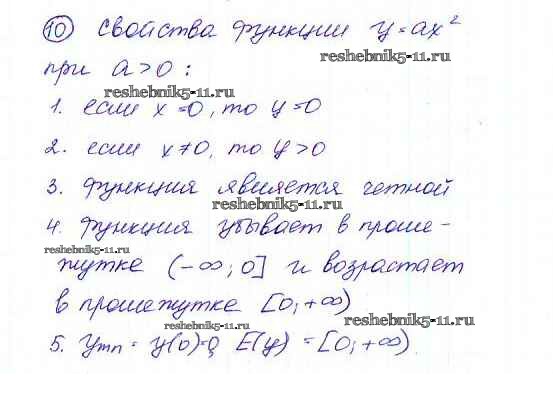 10 Свойства функции y=ax²
reshebnik5-11.ru
при a>0:
reshebnik5-11.ru
1. если x=0, то y=0
2. если x≠0, то y>0
3. Функция является четной
reshebnik5-11.ru
4. Функция убывает в проме-
reshebnik5-11.ru
жутке (-∞; 0] и возрастает
в промежутке [0; +∞)
reshebnik5-11.ru
reshebnik5-11.ru
5. ymin = y(0)=0, E(y) = [0; +∞)